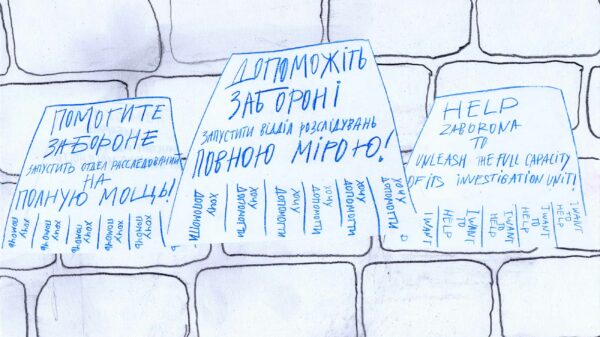 ПОМОГИТЕ
ЗАБОРОНЕ
ЗАПУСТИТЬ ОТДЕЛ РАССЛЕДОВАНИЙ
НА
ПОЛНУЮ МОЩЬ!
ХОЧУ ПОМОЧЬ
ХОЧУ ПОМОЧЬ
ХОЧУ ПОМОЧЬ
ХОЧУ ПОМОЧЬ
ХОЧУ ПОМОЧЬ
ДОПОМОЖІТЬ
ЗАБОРОНІ
ЗАПУСТИТИ ВІДДІЛ РОЗСЛІДУВАНЬ
ПОВНОЮ МІРОЮ!
ХОЧУ ДОПОМОГТИ
ХОЧУ ДОПОМОГТИ
ХОЧУ ДОПОМОГТИ
ХОЧУ ДОПОМОГТИ
ХОЧУ ДОПОМОГТИ
ХОЧУ ДОПОМОГТИ
HELP
ZABORONA
TO
UNLEASH THE FULL CAPACITY
OF ITS INVESTIGATION UNIT!
I WANT
I WANT TO HELP
I WANT TO HELP
I WANT TO HELP
I WANT TO HELP